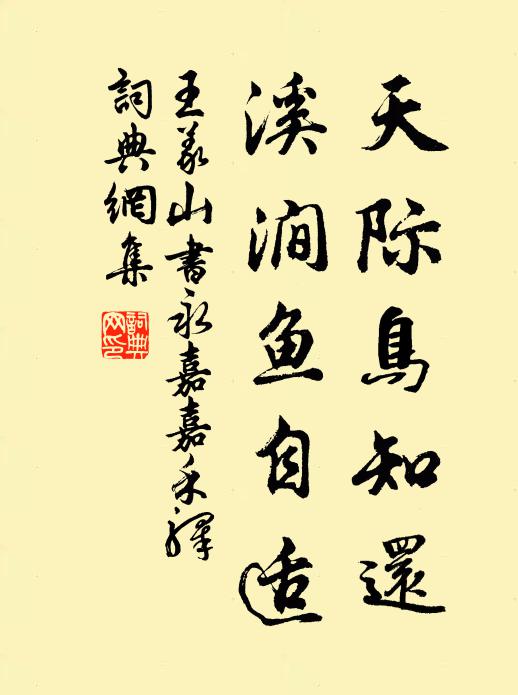 天际鸟知還
溪涧鱼自适
王義山書永嘉嘉禾驛
詞典網集
詞典网印